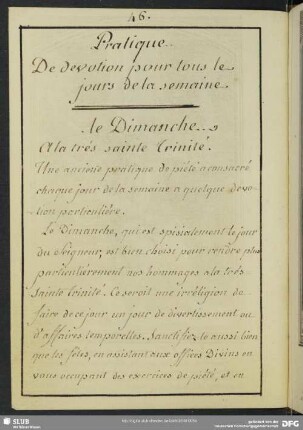 46.
Pratique
De devotion pour tous le
jours de la semaine
le Dimanche
A la trés sainte Trinité.
Une anciene pratique de piété a consacré
chaque jour de la semaine a quelque devo
tion particuliére.
Le Dimanche, qui est spésialement le jour
du Seigneur, est bien choisi pour rendre plus
particuliérement aux hommages a la trés
Sainte Trinité. Ce seroit une irréligion de
faire de ce jour un jour de divertissement ou
d'affaires temporelles. Sanctifiez le aussi bien
que les fétes, en assistant aux offices Divins en
vous occupant des exercices de piété, et en
SLUB
DFG